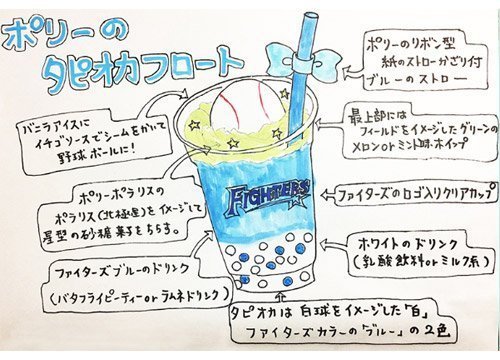 ポリーの
タピオカフロート
ポリーのリボン型
紙のストローかざり付
ブルーのストロー
バニラアイスに
イチゴソースでシームをかいて
野球ボールに!
最上部には
フィールドをイメージしたグリーンの
メロンorミント味ホイップ
ポリーポラリスの
ポラリス(北極星)をイメージして
星型の砂糖菓子をちらす。
FIGHTERS
ファイターズのロゴ入りクリアカップ
ファイターズブルーのドリンク
(バタフライピーティーorラムネドリンク)
ホワイトのドリンク
(乳酸飲料orミルク系)
タピオカは白球をイメージした「白」
ファイターズカラーの「ブルー」の2色